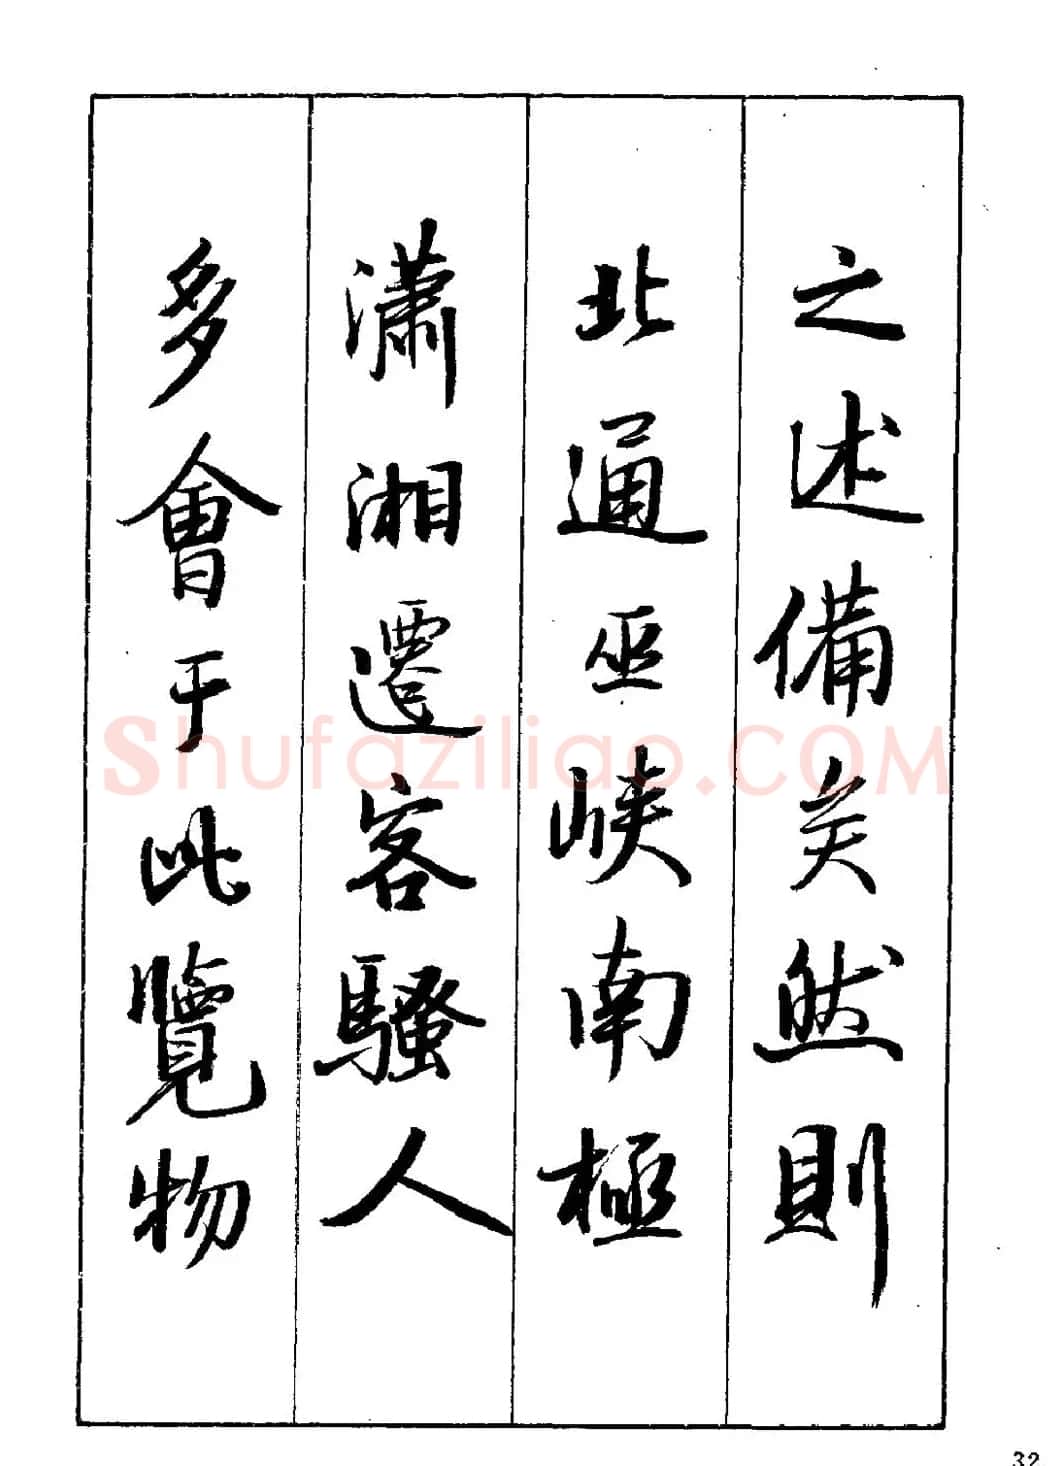 之述備矣然則
北通巫峽南極
瀟湘遷客騷人
多會于此覽物
Shufaziliao.COM
32